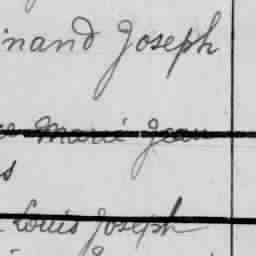 inand Joseph
Marie Jean
s
Louis Joseph